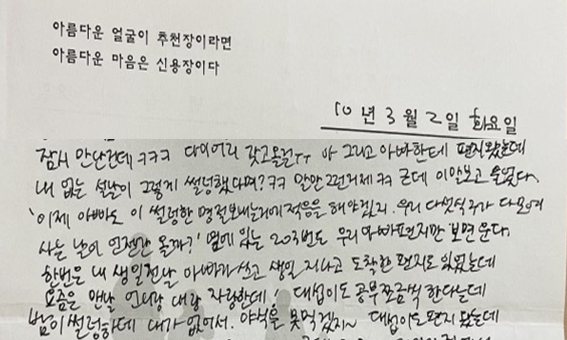 아름다운 얼굴이 추천장이라면
아름다운 마음은 신용장이다
10년 3월 2일 화요일
잠시 만난건데 ㅋㅋㅋ 다이어리 갖고올걸ㅜㅜ 아 그리고 아빠한테 편지왔는데
내 없는 설날이 그렇게 썰렁했다면? ㅋㅋ 말만 그런거제ㅋㅋ 근데 이말보고 울었다.
'이제 아빠도 이 썰렁한 명절보내는거에 적응을 해야겠지. 우리 다섯식구가 다모여
사는 날이 언젠간 올까?' 옆에 있는 203번도 우리아빠편지만 보면 운다.
한번은 내 생일전날 아빠가 쓰고 생일 지나고 도착한 편지도 있었는데
요즘은 맨날 언니랑 내랑 자랑한데 대섭이도 공부쪼금씩 한다는데
밤이 썰렁하데 내가 없어서. 야식을 못먹겠지~ 대섭이도편지 왔는데